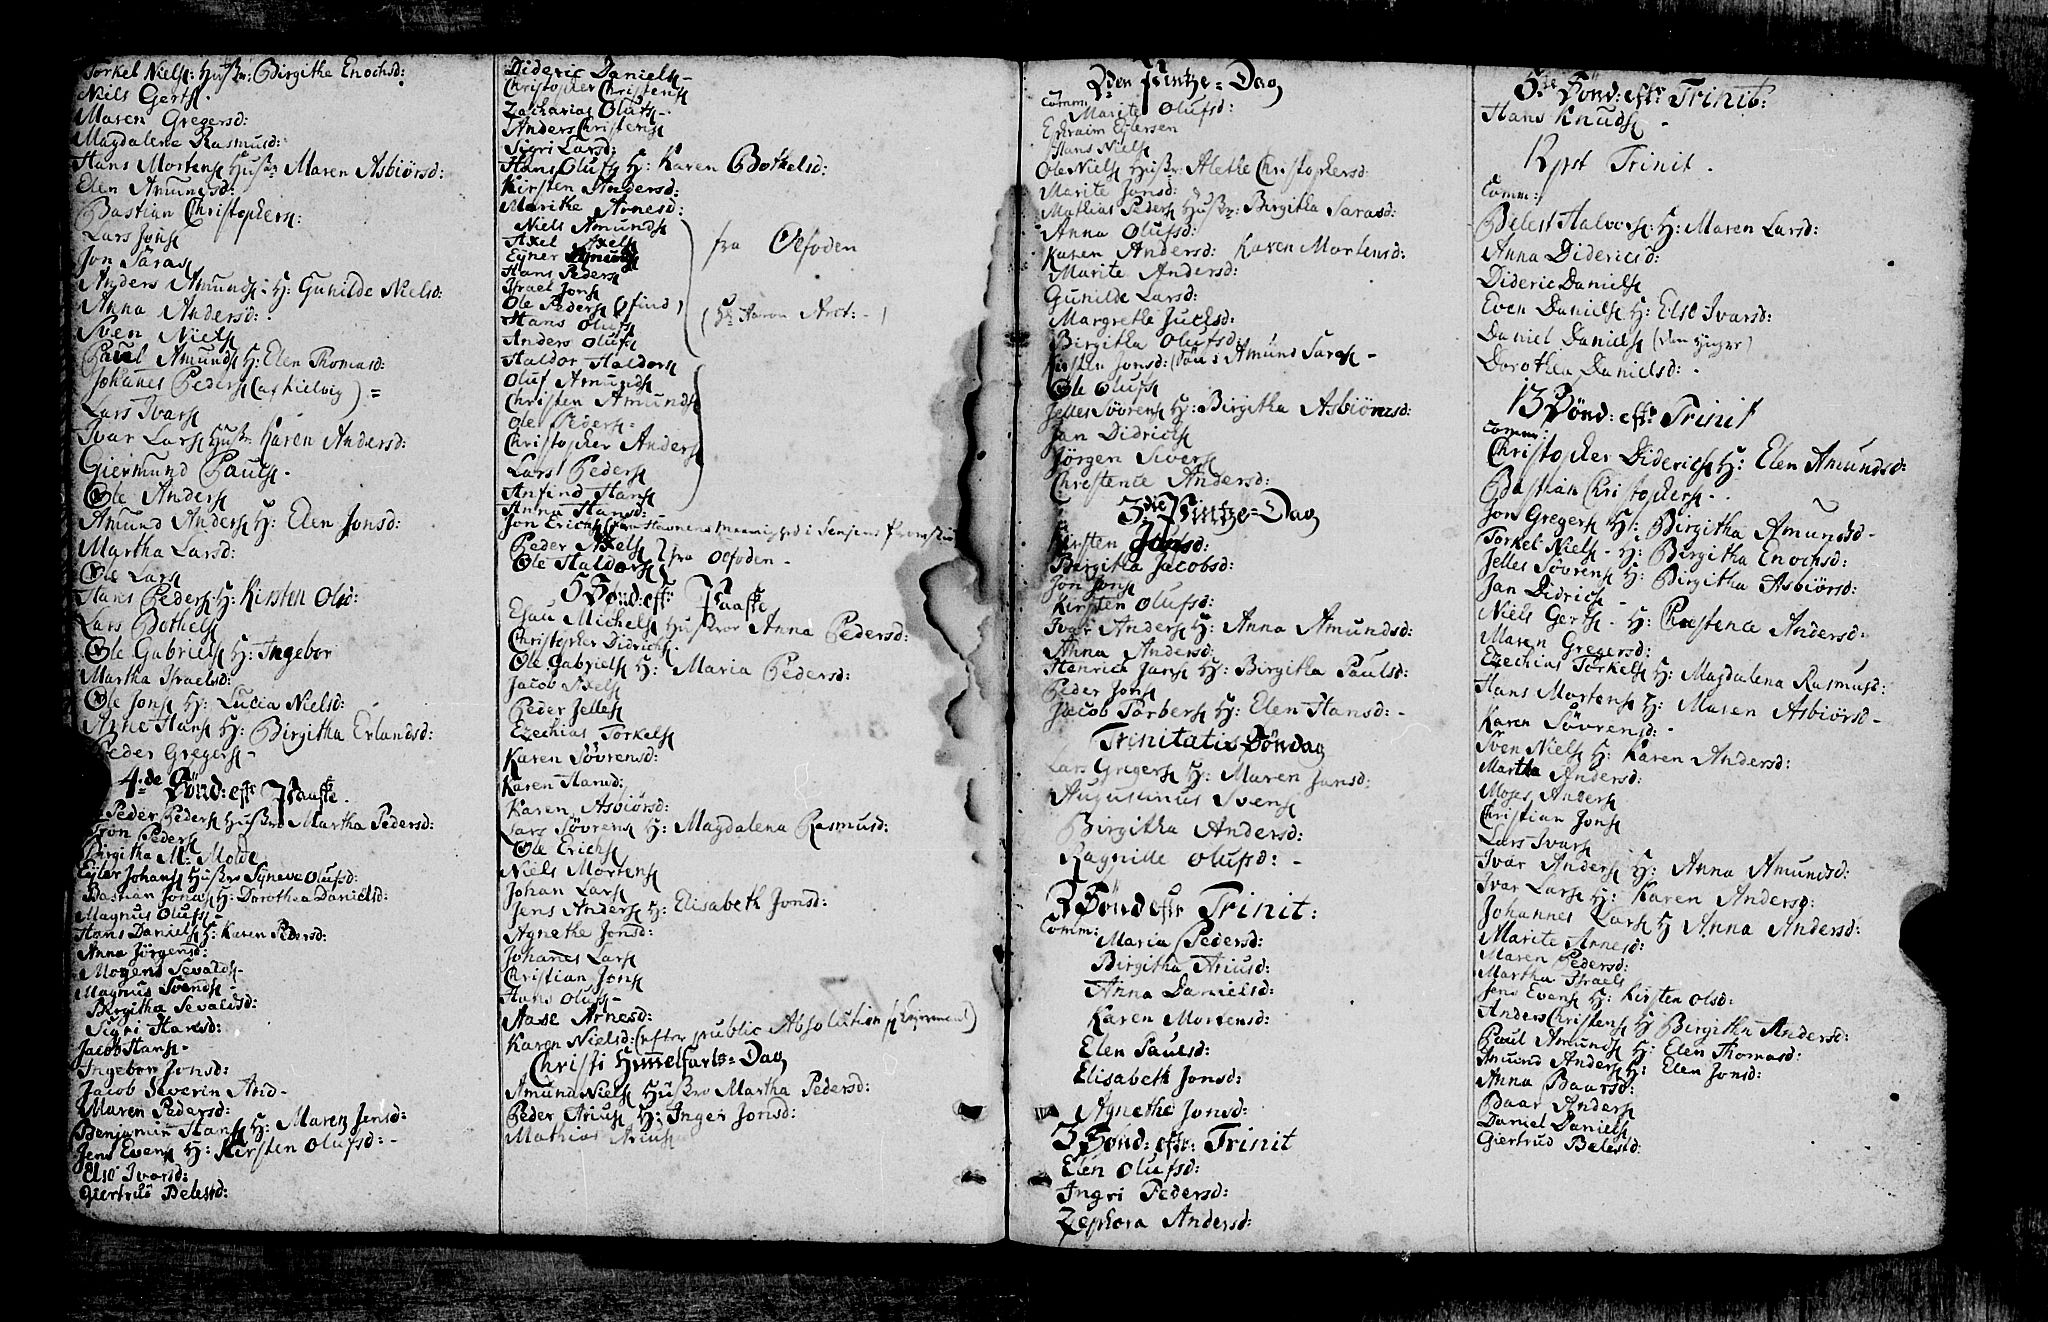 Torkel Niels: Hustr: Birgithe Enochsd:
Niels Gerts.
Maren Gregersd:
Magdalene Rasmusd:
Hans Mortens Hustr Maren Asbiörsd:
Elen Amundsd:
Bastian Christophers:
Lars Jons
Jon Saras
Anders Amunds: H: Gunilde Nielsd:
Anna Andersd:
Sven Niels
Paul Amunds H: Elen Thomasd:
Johanes Peders (af Kielvig) =
Lars Ivars
Ivar Lars Hustr: Karen Andersd:
Giermund Pauls.
Ole Anders
Amund Anders H: Elen Jonsd:
Martha Larsd:
Ole Lars
Hans Peders H: Kirsten Olsd:
Lars Bothels
Ole Gabriels H: Ingebor
Martha Israelsd:
Ole Jons H: Lucia Nielsd:
Arne Hans H: Birgitha Erlandsd:
Peder Gregers
4.de Sönd: eftr Paaske.
Peder Peders Hustr: Martha Pedersd:
Jon Peders
Birgitha M: Molde
Ejler Johans Hustr Syneve Olufsd:
Bastian Jonas H: Dorothea Danielsd:
Magnus Olufs-
Hans Daniels H: Karen Pedersd:
Anna Jörgensd:
Mogens Sevalds-
Magnus Svends-
Birgitha Sevaldsd:
Sigri Hansd:
Jacob Hans-
Ingebor Jonsd:
Jacob Severin And-
Maren Pedersd:
Benjamin Hans H: Maren Jensd:
Jens Evens H: Kirsten Olufsd: -
Else Ivarsd:
Giertrud Belestd:
Dideric Daniels-
Christopher Christens
Zacharias Olufs-
Anders Christens
Sigri Larsd:
Hans Olufs H: Karen Bothelsd:
Kirsten Andersd:
Marithe Arnesd:
Niels Amunds
Axel Axels
Ejner
Hans Peders
Israel Jons
Ole Peders (find)
Hans Olufs
Anders Olufs
fra Ofoden
(Hr Aaron Arct: -)
Haldor Haldors
Oluf Amunds
Christen Amunds
Ole Peders-
Christopher Anders
Lars Peders
Anfind Hans
Anna Hansd: -
Jon Erichs
Peder Axels
Ole Haldors } fra Ofoden -
5 Sönd: eftr Paaske
Esau Michels Hustror Anna Pedersd:
Christopher Didrichs.
Ole Gabriels H: Maria Pedersd:
Jacob Axels
Peder Jelles
Ezechias Torkels
Karen Sövrensd:
Karen Hansd:
Karen Asbiörsd:
Lars Sövrens H: Magdalena Rasmusd:
Ole Erichs
Niels Mortens
Johan Lars
Jens Anders H: Elisabeth Jonsd:
Agnethe Jonsd:
Johanes Lars
Christian Jons
Hans Olufs-
Aase Arnesd:
Karen Nielsd: (efter public Absolution
Christi Himmelfarts-Dag
Amund Niels Hustro Martha Pedersd:
Peder Arius H: Inger Jonsd:
Mathias Arius
2den Pintze-Dag
Comm: Marite Olufsd:
Ephraim Ejlersen
Hans Niels
Ole Niels Hustr: Alethe Christophersd
Marite Jonsd:
Mathias Peders Hustr: Birgitha Sarasd:
Anna Olufsd:
Karen Andersd: Karen Mortensd:
Marite Andersd:
Gunilde Larsd:
Margrethe Juelsd:
Birgitha Olufsd:
Kirsten Jonsd: Amund Saras -
Ole Olufs
Jelles Sövrens H: Birgitha Asbiörnsd:
Jan Didrichs
Jörgen Sivers
Chrestence Andersd:
3die Pintze-Dag
Kirsten Jonsd:
Birgitha Jacobsd:
Jon Jons
Kirsten Olufsd:
Ivar Anders H: Anna Amundsd:
Anna Andersd:
Henrich Jans H: Birgitha Paulsd:
Peder Jons
Jacob Torbers H: Elen Hansd: -
Trinitatis Söndag
Lars Gregers H: Maren Jonsd:
Augustinus Svens
Birgitha Andersd:
Ragnille Olufsd: -
2 Sönd eftr Trinit:
Comm: Maria Pedersd:
Birgitha Ariusd:
Anna Danielsd:
Karen Mortensd:
Elen Paulsd:
Elisabeth Jonsd:
Agnethe Jonsd:
3 Sönd: eftr: Trinit
Elen Olufsd:
Ingri Pedersd:
Zephora Andersd:
5te Sönd: eftr Trinit:
Hans Knuds -
12 p: Trinit.
Comm:
Belest Halvors: H: Maren Larsd:
Anna Didericsd:
Dideric Daniels
Even Daniels H: Else Ivarsd:
Daniel Daniels (den yngre)
Dorothea Danielsd: -
13 Sönd: eftr Trinit
Comm:
Christopher Diderichs H: Elen Amundsd:
Bastian Christophers -
Jon Gregers H: Birgitha Amundsd -
Torkel Niels - H: Birgitha Enochsd:
Jelles Sövrens H: Birgitha Asbiörsd:
Jan Didrich -
Niels Gerts - H: Chrestence Andersd:
Maren Gregersd:
Ezechias Torkels H: Magdalena Rasmusd:
Hans Mortens H: Maren Asbiörsd -
Karen Sövrensd: -
Sven Niels H: Karen Andersd:
Martha Andersd:
Moses Anders
Christian Jons
Lars Ivars
Ivar Anders H: Anna Amundsd:
Ivar Lars H: Karen Andersd:
Johannes Lars H Anna Andersd:
Marite Arnesd:
Maren Pedersd:
Martha Israels
Jens Evens H: Kirsten Olsd:
Anders Christens H: Birgitha Andersd:
Paul Amunds H: Elen Thomasd:
Amund Anders H: Elen Jonsd:
Anna Baarsd:
Baar Anders
Daniel Daniels
Giertrud Belestd: